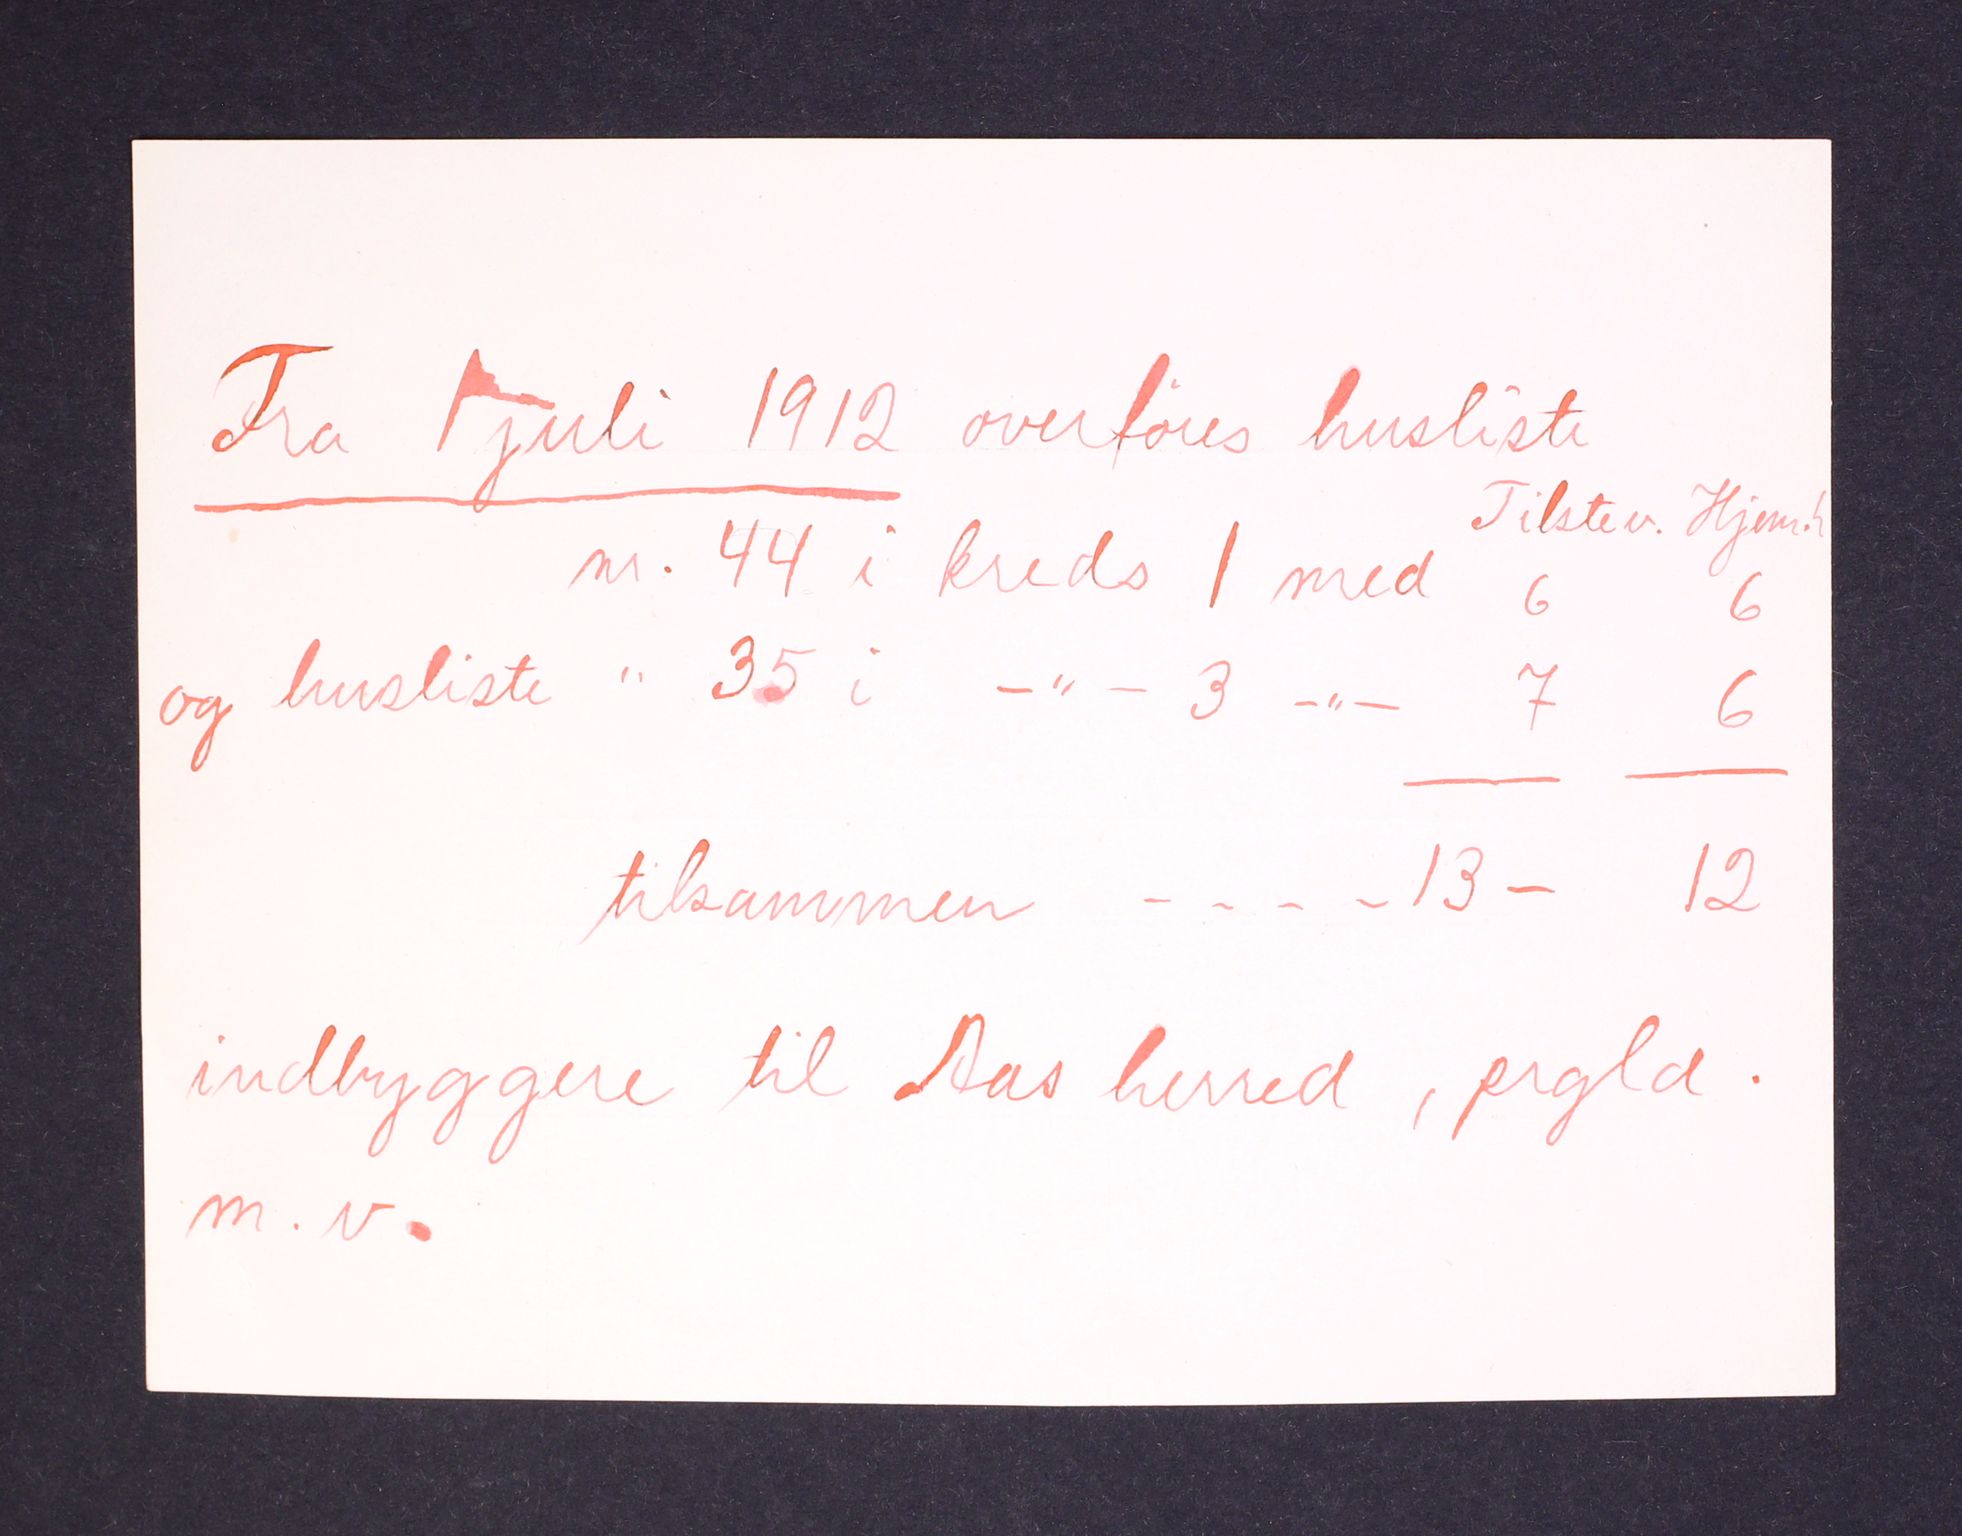 Fra 1 juli 1912 overføres husliste
Tilstev. Hjem.h
nr. 44 i kreds 1 med 6 6
og husliste " 35 i -"- 3 -"- 7 6
tilsammen - - - - 13 - 12
indbyggere til Aas herred, prgld.
m.v.